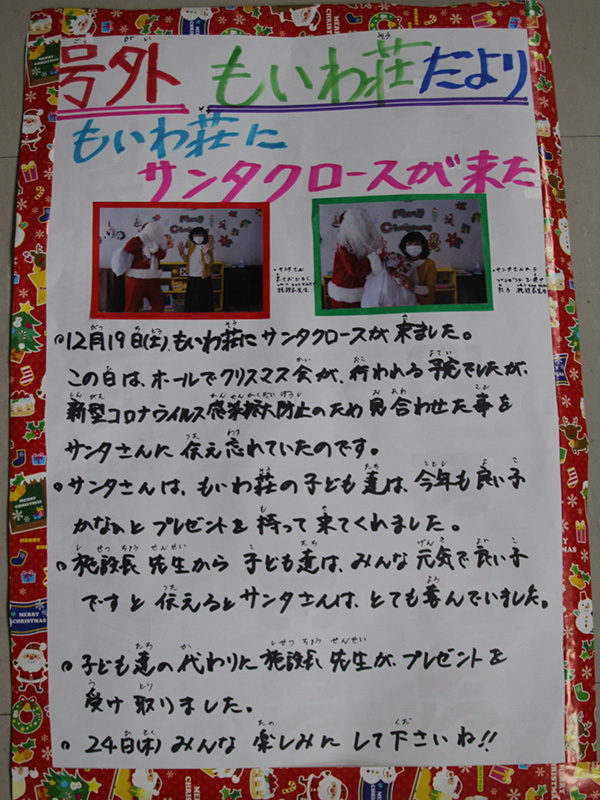 号外 もいわ荘だより
もいわ荘に
サンタクロースが来た
・12月19日(土)、もいわ荘にサンタクロースが来ました。
この日は、ホールでクリスマス会が、行われる予定でしたが、
新型コロナウイルス感染拡大防止のため見合わせた事を
サンタさんに伝え忘れていたのです。
・サンタさんは、もいわ荘の子ども達は、今年も良い子
かな?と プレゼントを 持って 来てくれました。
・施設長 先生から 子ども達は、みんな 元気で良い子
ですと 伝えるとサンタさんは、とても喜んでいました。
・子ども達の代わりに施設長 先生が、プレゼントを
受け取りました。
・24日(木)みんな 楽しみに して下さいね!!
MERRY CHRISTMAS